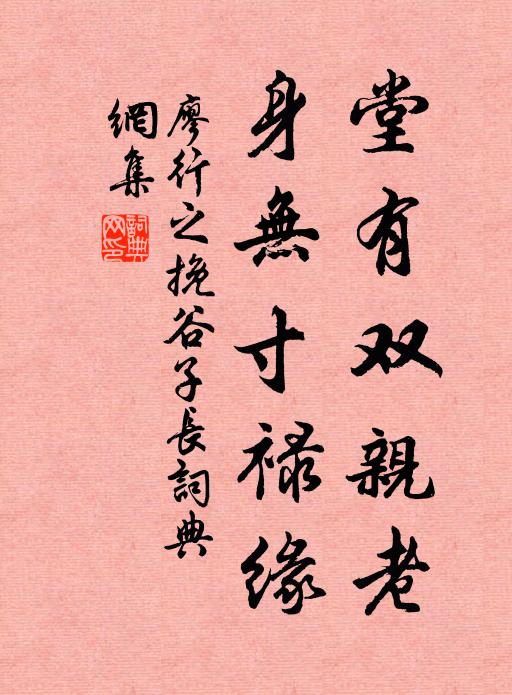 堂有双親老
身無寸禄緣
廖行之挽谷子長詞典
網集
詞典
网印